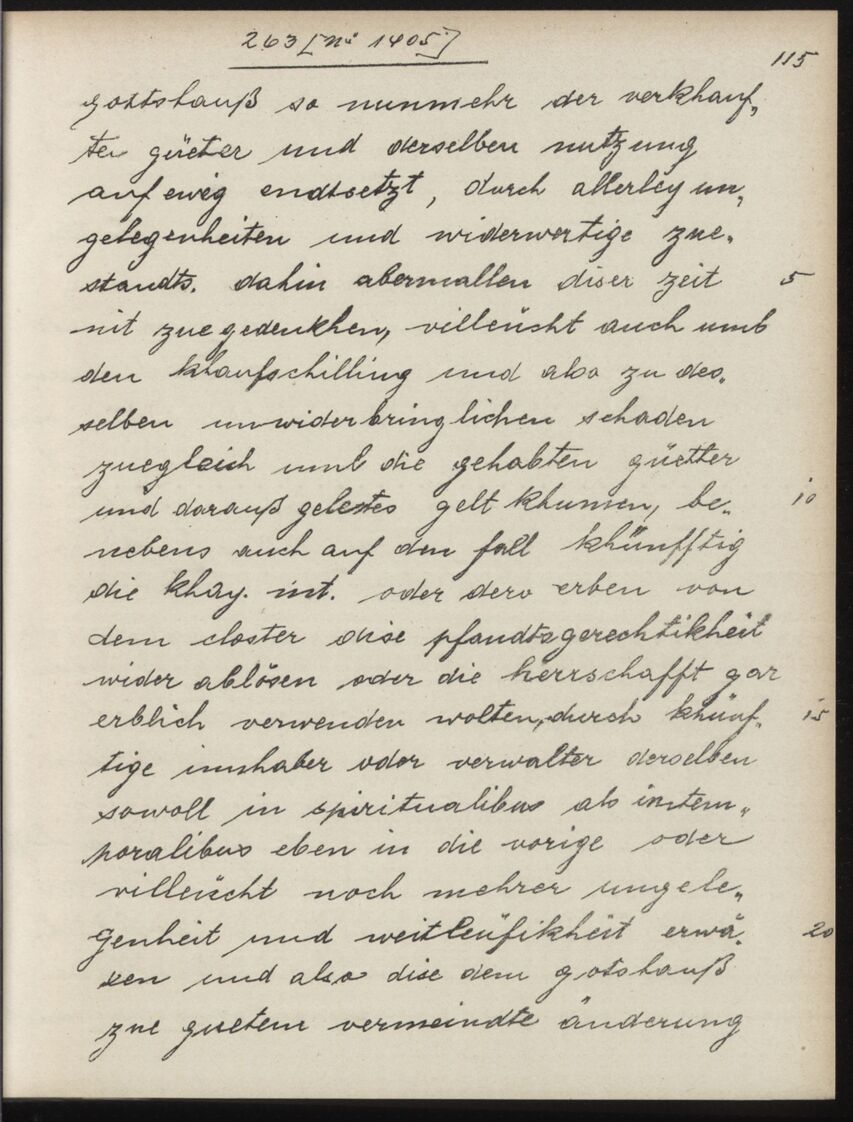 263 [nº 1405]
115
gottshauß so nunmehr der verkhauf„
ten güeter und derselben nutzung
auf ewig endtsetzt, durch allerley un„
gelegenheiten und widerwertige zue„
standts. dahin abermallen diser zeit 5
nit zue gedenkhen, villeücht auch umb
den khaufschilling und also zu des„
selben unwiderbringlichen schaden
zuegleich umb die gehabten güetter
und darauß gelestes gelt khumen, be„ 10
nebens auch auf den fall khünfftig
die khay. mt. oder dero erben von
dem closter dise pfandtsgerechtikheit
wider ablösen oder die herrschafft gar
erblich verwenden wolten, durch khünf„ 15
tige innhaber oder verwalter derselben
sowoll in spiritualibus als in tem„
poralibus eben in die vorige oder
villeücht noch mehrer ungele„
genheit und weitleüfikheit erwä„ 20
xen und also dise dem gotshauß
zue guetem vermeindte änderung